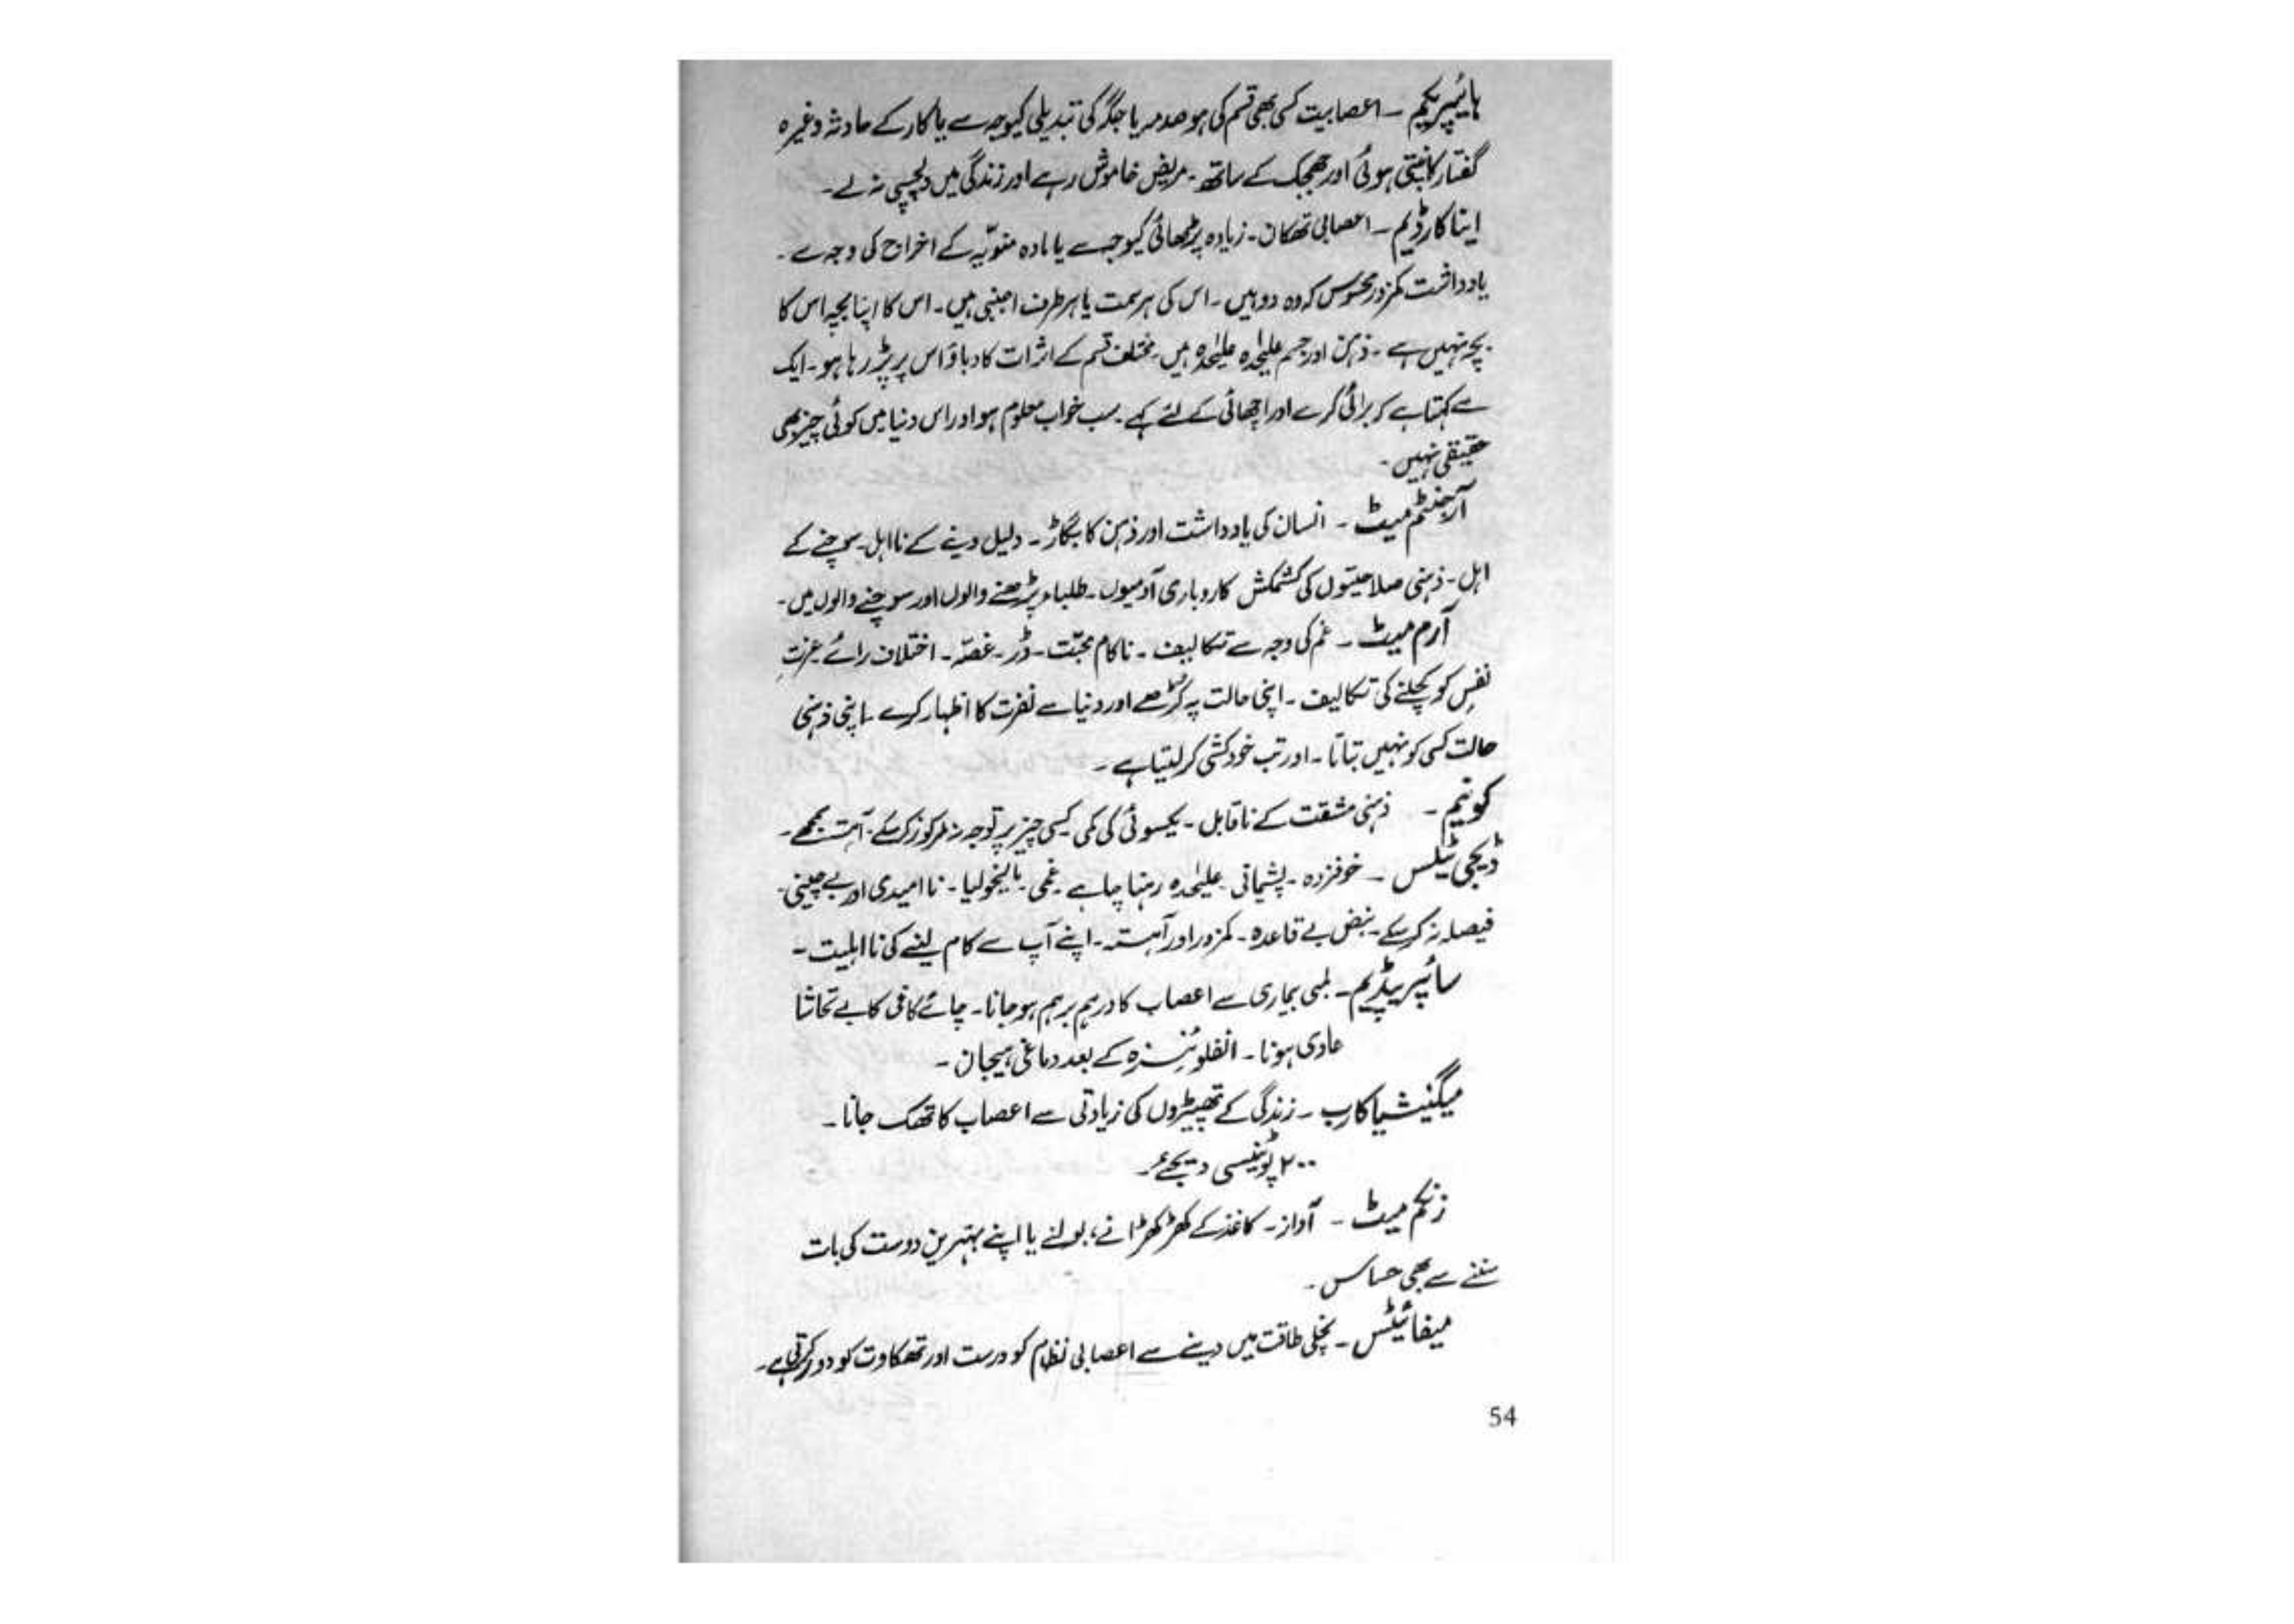 ہائیپریکم ۔ اعصابیت کسی بھی قسم کی ہو صدمہ یا جگر کی تبدیلی کیوجہ سے یا کار کے حادثہ وغیرہ
گفتار کانپتی ہوئی اور جھجک کے ساتھ ۔ مریض خاموش رہے اور زندگی میں دلچسپی نہ لے ۔
اینا کارڈیم ۔ اعصابی تھکان ۔ زیادہ پڑھائی کیوجہ سے یا مادہ منویّہ کے اخراج کی وجہ سے ۔
یادداشت کمزور محسوس کہ وہ دو ہیں ۔ اس کی ہر سمت یا ہر طرف اجنبی ہیں ۔ اس کا اپنا بچہ اس کا
بچہ نہیں ہے ۔ ذہن اور جسم علیٰحدہ علیٰحدہ ہیں ۔ مختلف قسم کے اثرات کا دباؤ اس پر پڑ رہا ہو ۔ ایک
سے کہتا ہے کہ برائی کرے اور اچھائی کے لئے کہے ۔ سب خواب معلوم ہو اور اس دنیا میں کوئی چیز بھی
حقیقی نہیں ۔
آرجنٹم میٹ ۔ انسان کی یادداشت اور ذہن کا بگاڑ ۔ دلیل دینے کے نااہل ۔ سوچنے کے
اہل ۔ ذہنی صلاحیتوں کی کشمکش کاروباری آدمیوں ۔ طلباء پڑھنے والوں اور سوچنے والوں میں ۔
آرم میٹ ۔ غم کی وجہ سے تکالیف ۔ ناکام محبّت ۔ ڈر ۔ غصّہ ۔ اختلاف رائے ۔ عزتِ
نفس کو کچلنے کی تکالیف ۔ اپنی حالت پہ کڑھے اور دنیا سے نفرت کا اظہار کرے ۔ اپنی ذہنی
حالت کسی کو نہیں بتاتا ۔ اور تب خودکشی کر لیتا ہے ۔
کونیم ۔ ذہنی مشقت کے ناقابل ۔ یکسوئی کی کمی کسی چیز پر توجہ نہ مرکوز کر سکے ۔ آہستہ سمجھے ۔
ڈیجی ٹیلس ۔ خوفزدہ ۔ پشیمانی ۔ علیٰحدہ رہنا چاہے ۔ غمی ۔ مالیخولیا ۔ ناامیدی اور بے چینی ۔
فیصلہ نہ کر سکے ۔ نبض بے قاعدہ ۔ کمزور اور آہستہ ۔ اپنے آپ سے کام لینے کی نااہلیت ۔
سائپریپڈیم ۔ لمبی بیماری سے اعصاب کا درہم برہم ہو جانا ۔ چائے کافی کا بے تحاشا
عادی ہونا ۔ انفلوئنزہ کے بعد دماغی ہیجان ۔
میگنیشیا کارب ۔ زندگی کے تھپیڑوں کی زیادتی سے اعصاب کا تھک جانا ۔
۲۰۰ پوٹینسی دیجئے ۔
زنکم میٹ ۔ آواز ۔ کاغذ کے کھڑکھڑانے، بولنے یا اپنے بہترین دوست کی بات
سننے سے بھی حساس ۔
میفائیٹس ۔ نچلی طاقت میں دینے سے اعصابی نظام کو درست اور تھکاوت کو دور کرتی ہے ۔
54